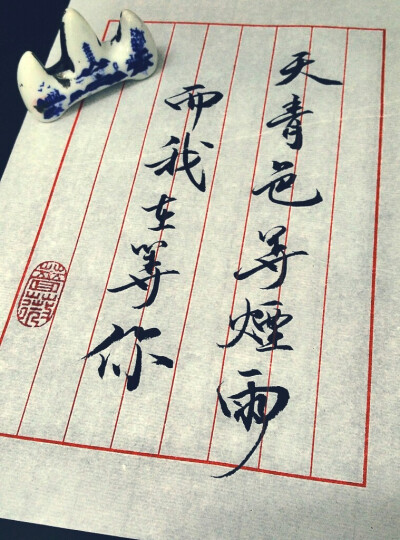 天青色等煙雨
而我在等你